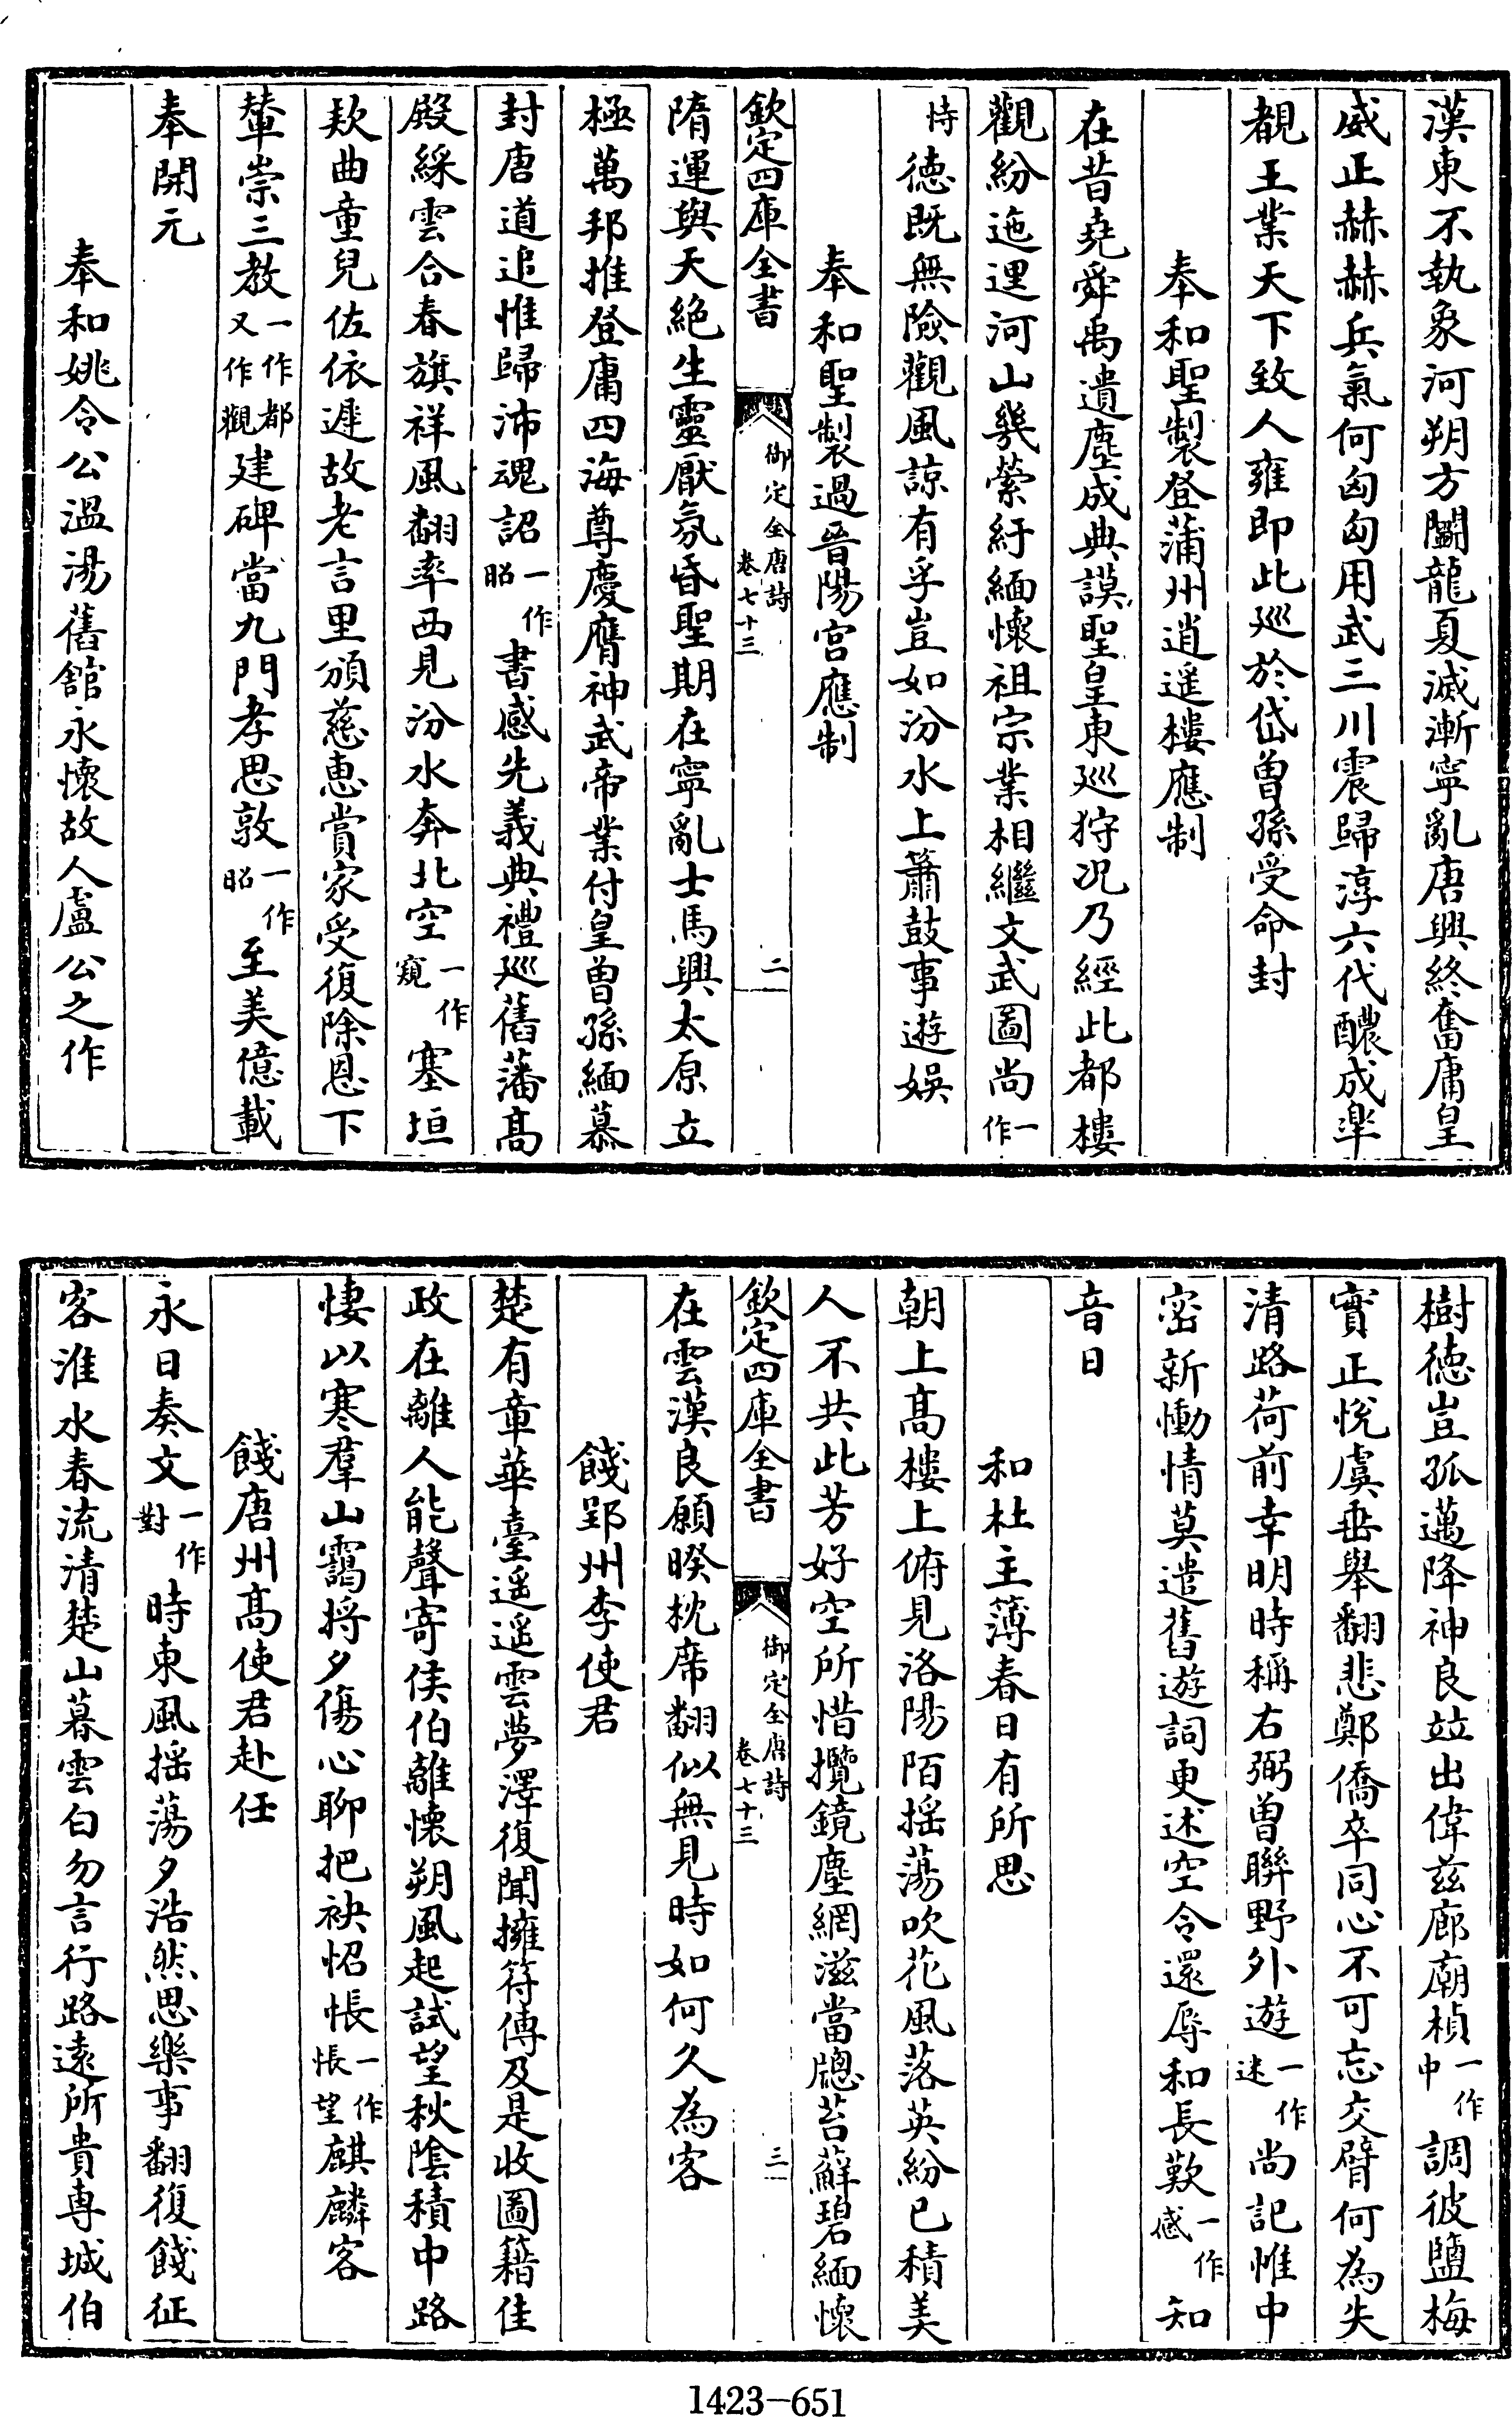 漢東不執象河朔方鬬龍夏滅漸寧亂唐興終奮庸皇
威正赫赫兵氣何匈匈用武三川震歸淳六代醲成率
覩王業天下致人雍即此巡於岱曾孫受命封
奉和聖製登蒲州逍遥樓應制
在昔堯舜禹遺塵成典謨聖皇東巡狩况乃經此都樓
觀紛迤邐河山幾縈紆緬懷祖宗業相繼文武圖尚一作
恃德既無險觀風諒有孚豈如汾水上簫鼓事遊娱
奉和聖製過晉陽宫應制
欽定四庫全書 御定全唐詩 卷七十三 二
隋運與天絶生靈厭氛昏聖期在寧亂士馬興太原立
極萬邦推登庸四海尊慶膺神武帝業付皇曾孫緬慕
封唐道追惟歸沛魂詔一作昭書感先義典禮巡舊藩髙
殿綵雲合春旗祥風翻率西見汾水奔北空一作窺塞垣
欵曲童兒佐依遲故老言里頒慈惠賞家受復除恩下
輦崇三教一作都又作觀建碑當九門孝思敦一作昭至美億載
奉開元
奉和姚令公温湯舊館永懷故人盧公之作
樹徳豈孤邁降神良竝出偉兹廊廟楨一作中調彼鹽梅
實正悦虞垂舉翻悲鄭僑卒同心不可忘交臂何為失
清路荷前幸明時稱右弼曾聯野外遊一作迷尚記惟中
密新慟情莫遣舊遊詞更述空令還辱和長歎一作感知
音日
和杜主簿春日有所思
朝上髙樓上俯見洛陽陌摇蕩吹花風落英紛已積美
人不共此芳好空所惜攬鏡塵網滋當牕苔蘚碧緬懷
欽定四庫全書 御定全唐詩 卷七十三 三
在雲漢良願暌枕席翻似無見時如何久為客
餞郢州李使君
楚有章華臺遥遥雲夢澤復聞擁符傳及是收圖籍佳
政在離人能聲寄侯伯離懷朔風起試望秋陰積中路
悽以寒羣山靄将夕傷心聊把袂怊悵一作悵望麒麟客
餞唐州髙使君赴任
永日奏文一作對時東風摇蕩夕浩然思樂事翻復餞征
客淮水春流清楚山暮雲白勿言行路遠所貴専城伯
1423-651